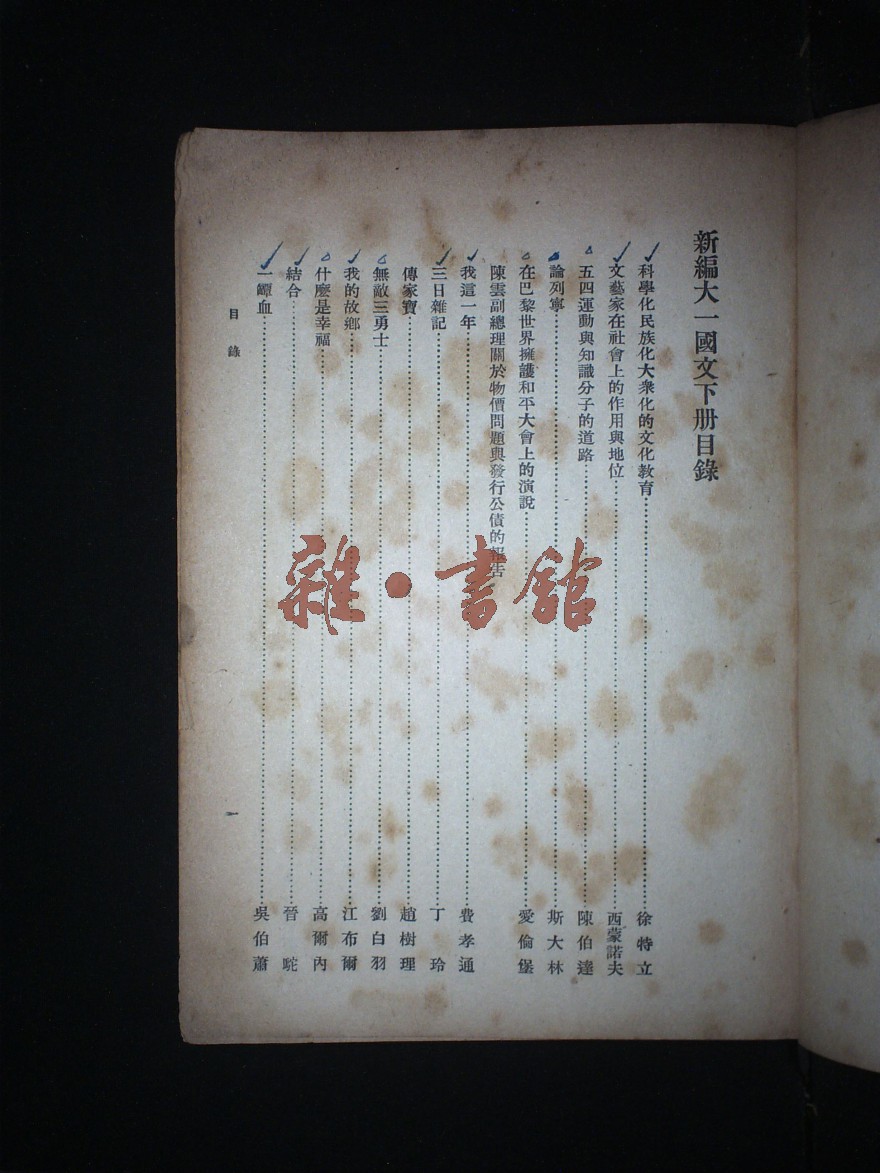 新編大一國文下册目錄
科學化民族化大衆化的文化教育 徐特立
文藝家在社會上的作用與地位 西蒙諾夫
五四運動與知識分子的道路 陳伯達
論列寧 斯大林
在巴黎世界擁護和平大會上的演說 愛倫堡
陳雲副總理關於物價問題與發行公債的報告
我這一年 費孝通
三日雜記 丁玲
傳家寶 趙樹理
無敵三勇士 劉白羽
我的故鄉 江布爾
什麼是幸福 高爾內
結合 晉駝
一罈血 吳伯蕭
目錄
一
雜·書館